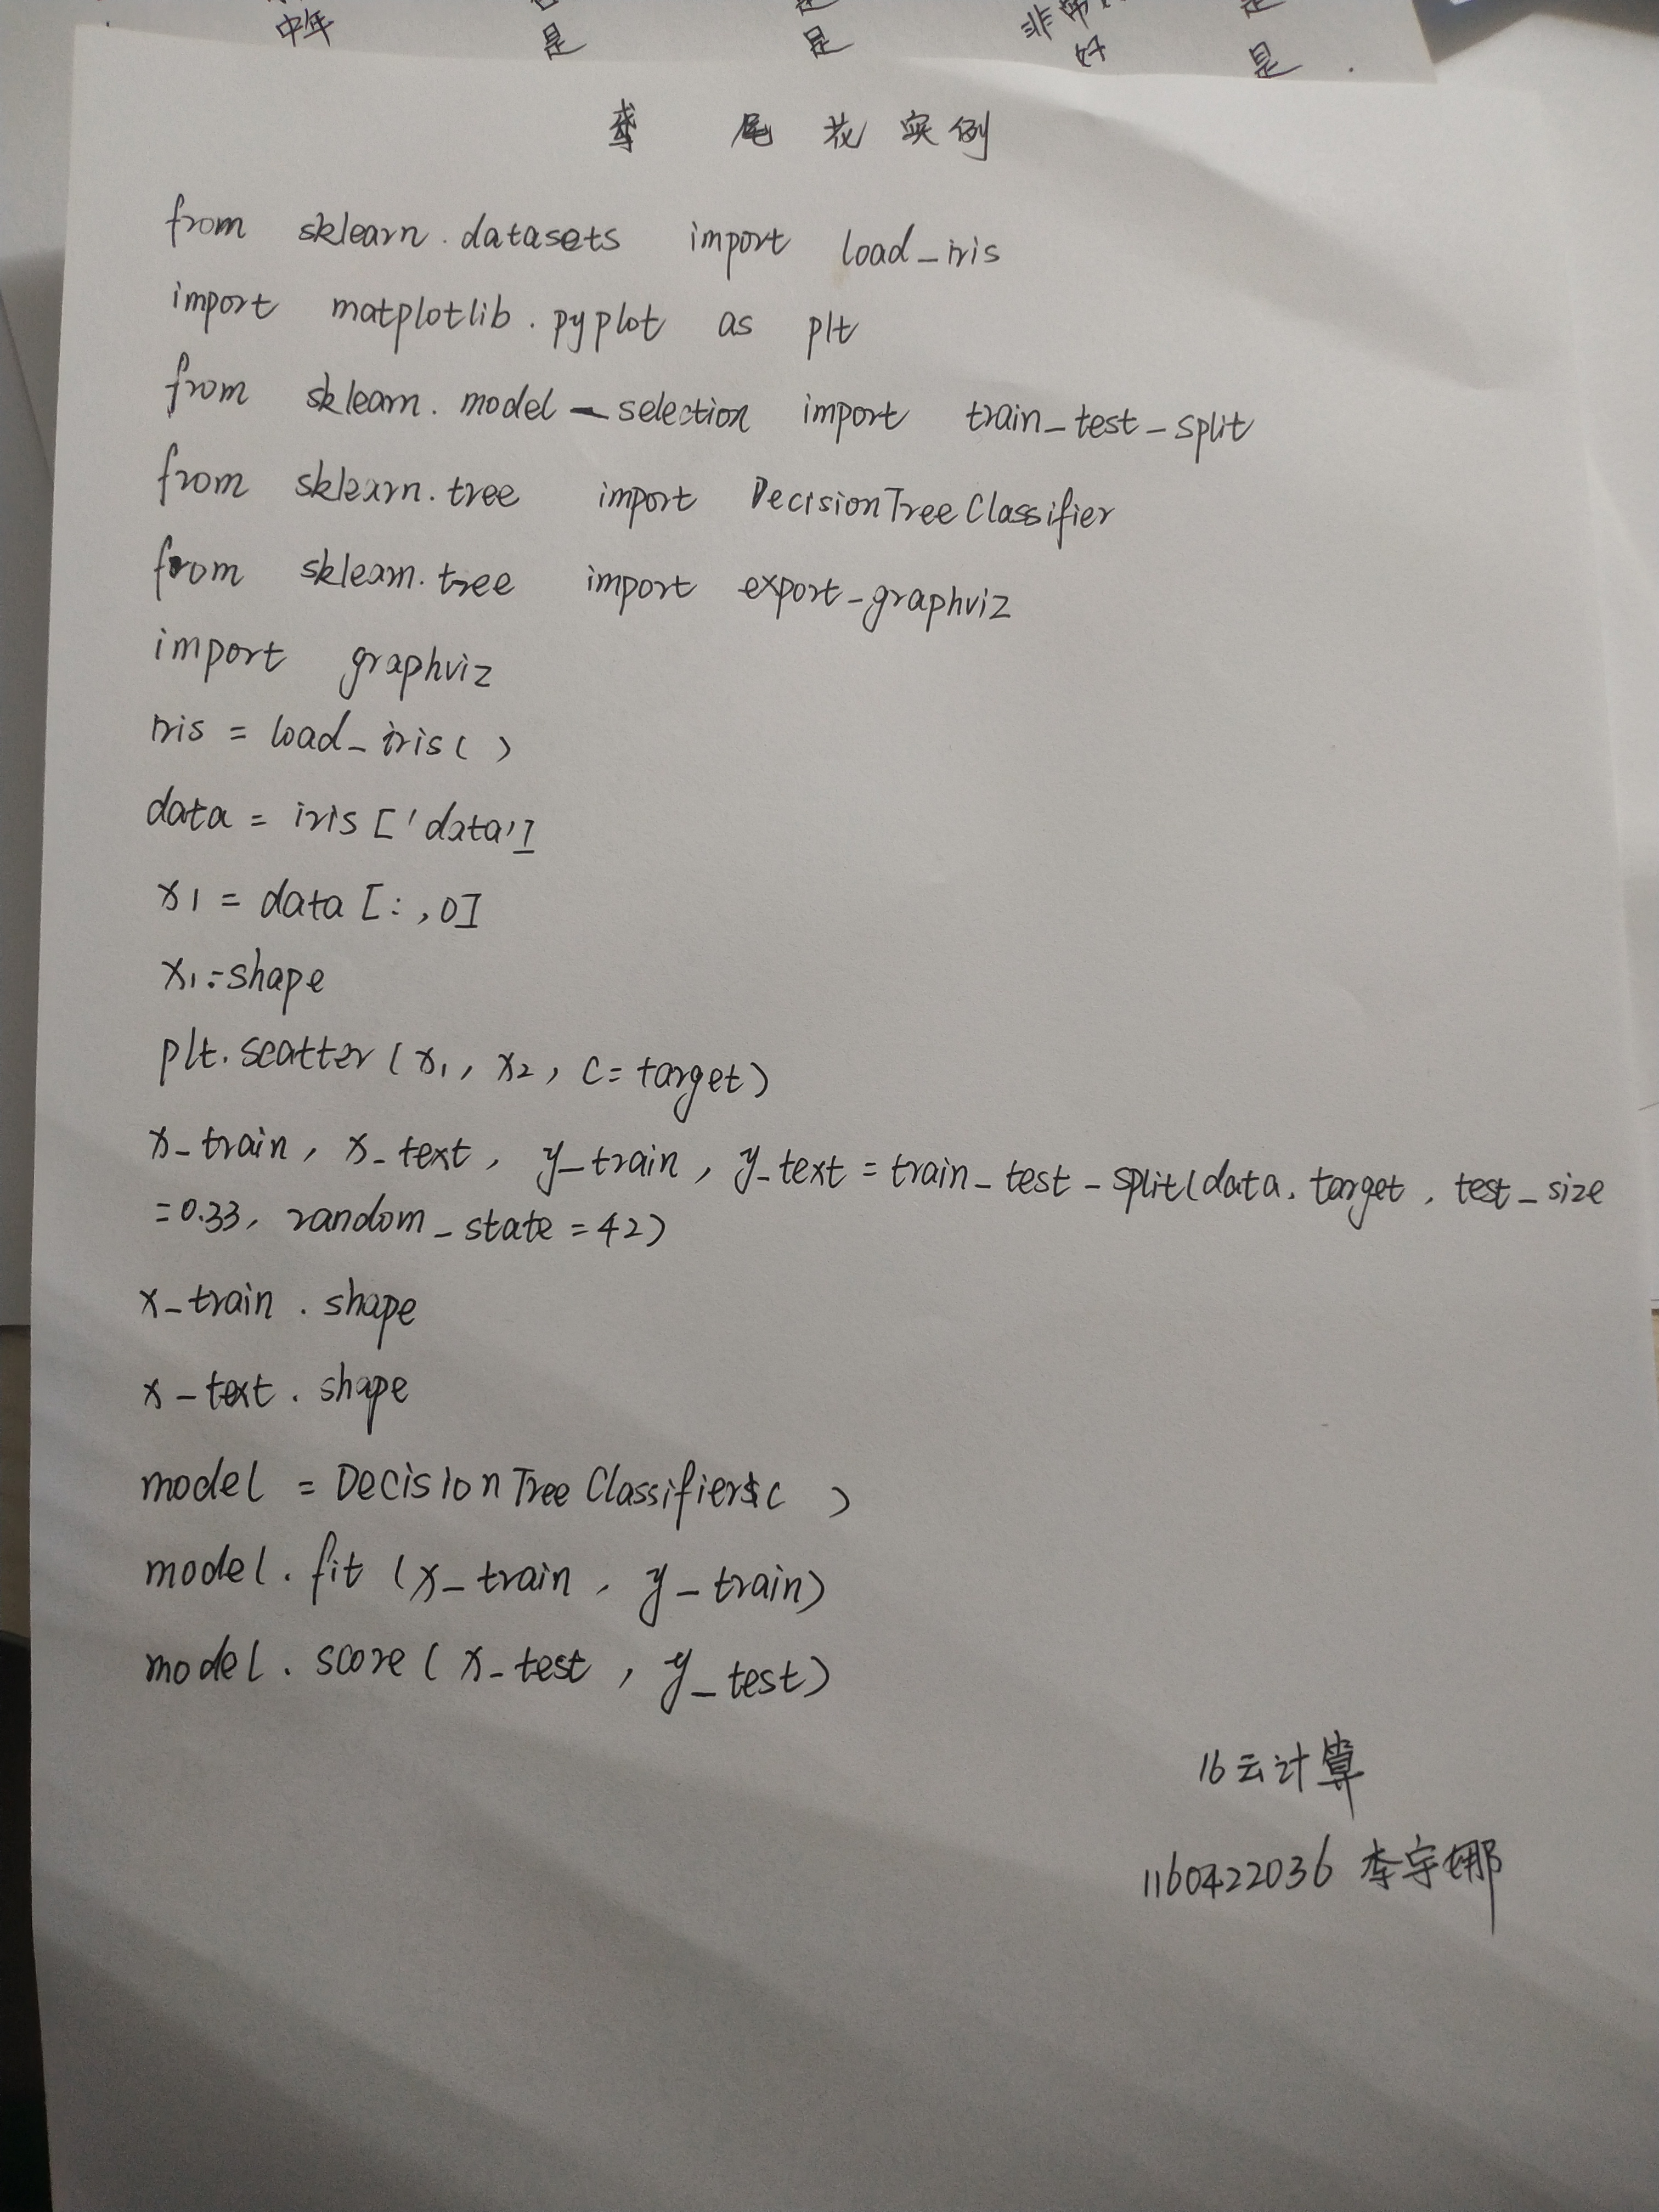 中年 是 是 非常 是
好 是
尾花实例
from sklearn.datasets import load_iris
import matplotlib.pyplot as plt
from sklearn.model_selection import train_test_split
from sklearn.tree import DecisionTreeClassifier
from sklearn.tree import export_graphviz
import graphviz
iris = load_iris( )
data = iris ['data']
x1 = data [:,0]
x1.=shape
plt.scatter (x1, x2, c=target)
x_train, x_text, y_train, y_text = train_test_split(data, target, test_size
=0.33, random_state = 42)
x_train . shape
x_text . shape
model = DecisionTreeClassifier( )
model . fit (x_train, y_train)
model . score (x_test, y_test)
16云计算
1160422036 李宇娜